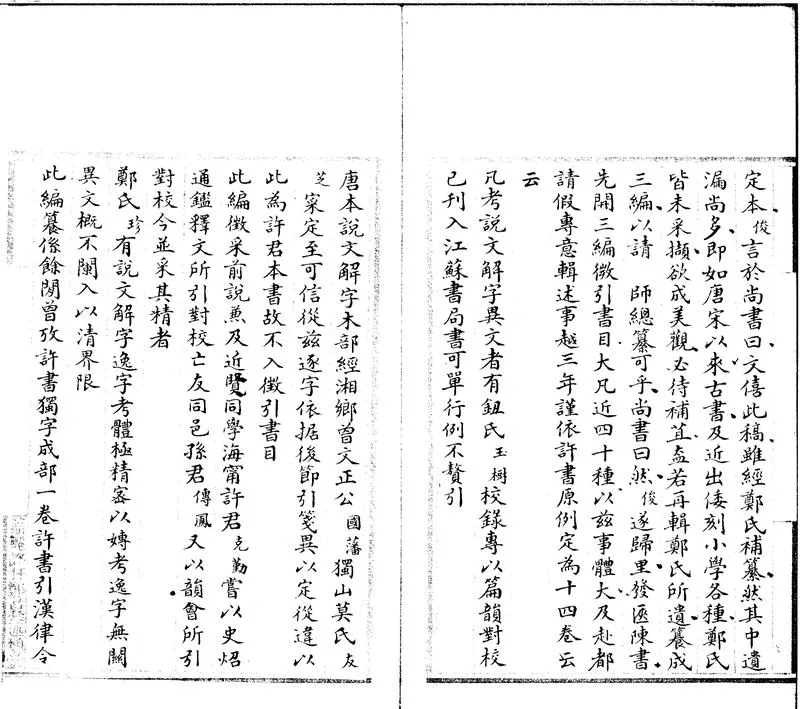 定本俊言於尚書曰文僖此稿雖經鄭氏補纂然其中遺
漏尚多即如唐宋以來古書及近出倭刻小學各種鄭氏
皆未采擷欲成美觀必待補苴盍若再輯鄭氏所遺纂成
三編以請 師總纂可乎尚書曰然俊遂歸里發匧陳書
先開三編徵引書目大凡近四十種以茲事體大及赴都
請假專意輯述事越三年謹依許書原例定為十四卷云
云
凡考說文解字異文者有鈕氏玉樹校錄專以篇韻對校
已刊入江蘇書局書可單行例不贅引
唐本說文解字木部經湘鄉曾文正公國藩獨山莫氏友
芝寀定至可信從茲逐字依据後節引箋異以定從違以
此為許君本書故不入徵引書目
此編徵采前說兼及近賢同學海甯許君克勤嘗以史炤
通鑑釋文所引對校亡友同邑孫君傳鳳又以韻會所引
對校今並采其精者
鄭氏珍有說文解字逸字考體極精宻以專考逸字無關
異文概不闌入以清界限
此編纂係餘閒曾攷許書獨字成部一卷許書引漢律令